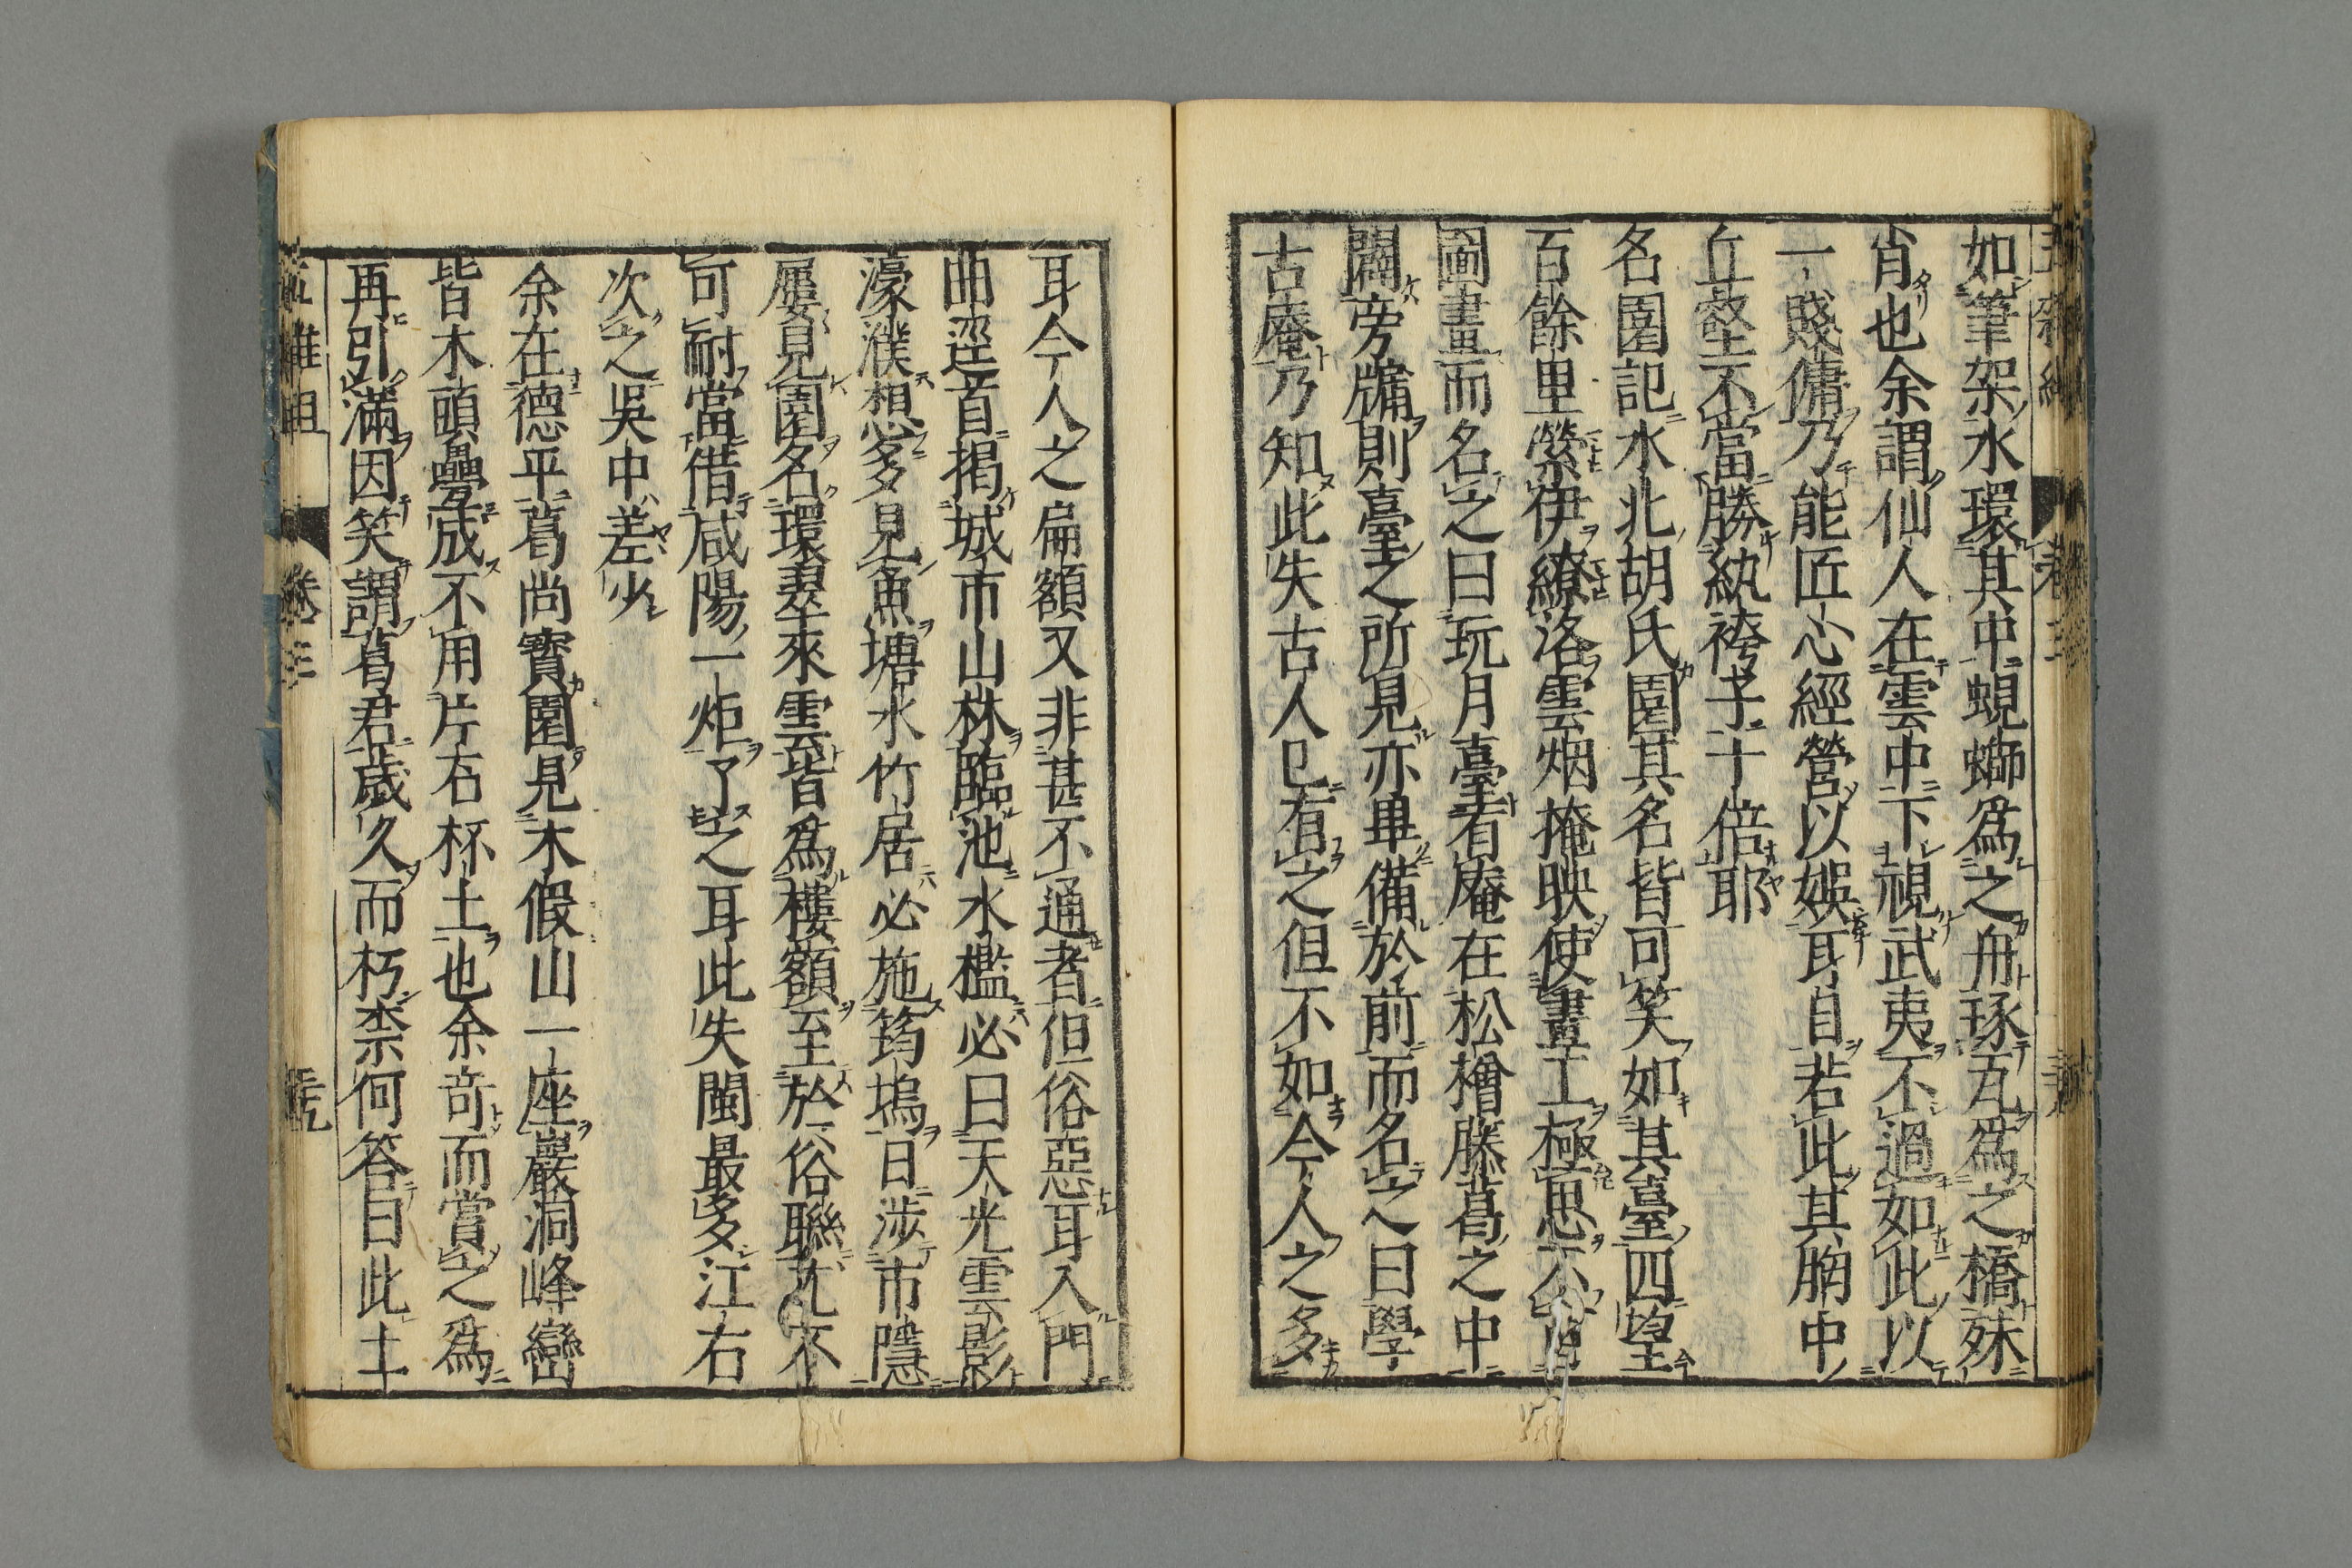 如筆架水環其中蜆螄爲之舟琢瓦爲之橋殊
肖也余謂仙人在雲中下視武夷不過如此以
一賤傭乃能匠心經營以娛耳目若此其胸中
丘壑不當勝紈袴子十倍耶
名園記水北胡氏園其名皆可笑如其臺四望
百餘里縈伊繚洛雲烟掩映使畫工極思不可
圖畫而名之曰玩月臺有庵在松檜藤葛之中
闢旁牖則臺之所見亦畢備於前而名之曰學
古庵乃知此失古人已有之但不如今人之多
耳今人之扁額又非甚不通者但俗惡耳入門
曲逕首揭城市山林臨池水檻必曰天光雲影
濠濮想多見魚塘水竹居必施筠塢日涉市隱
屢見園名環翠來雲皆爲樓額至於俗聯尤不
可耐當借咸陽一炬了之耳此失閩最多江右
次之吳中差少
余在德平葛尚寶園見木假山一座巖洞峰巒
皆木頭疊成不用片石杯土也余奇而賞之爲
再引滿因笑謂葛君歲久而朽柰何答曰此土
五雜組 卷三